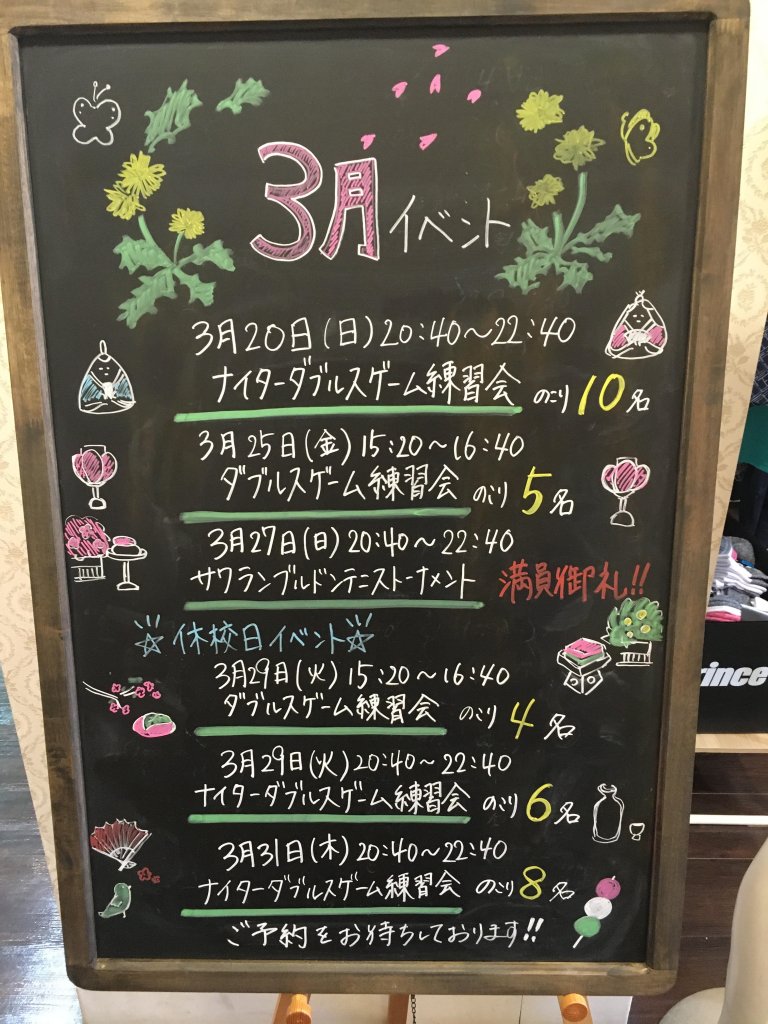 3月イベント
3月20日(日)20:40〜22:40
ナイターダブルスゲーム練習会 のこり10名
3月25日(金)15:20〜16:40
ダブルスゲーム練習会 のこり5名
3月27日(日)20:40〜22:40
サワランブルドンテニストーナメント 満員御礼!!
☆休校日イベント☆
3月29日(火)15:20〜16:40
ダブルスゲーム練習会 のこり4名
3月29日(火)20:40〜22:40
ナイターダブルスゲーム練習会 のこり6名
3月31日(木)20:40〜22:40
ナイターダブルスゲーム練習会 のこり8名
ご予約をお待ちしております!!
rince